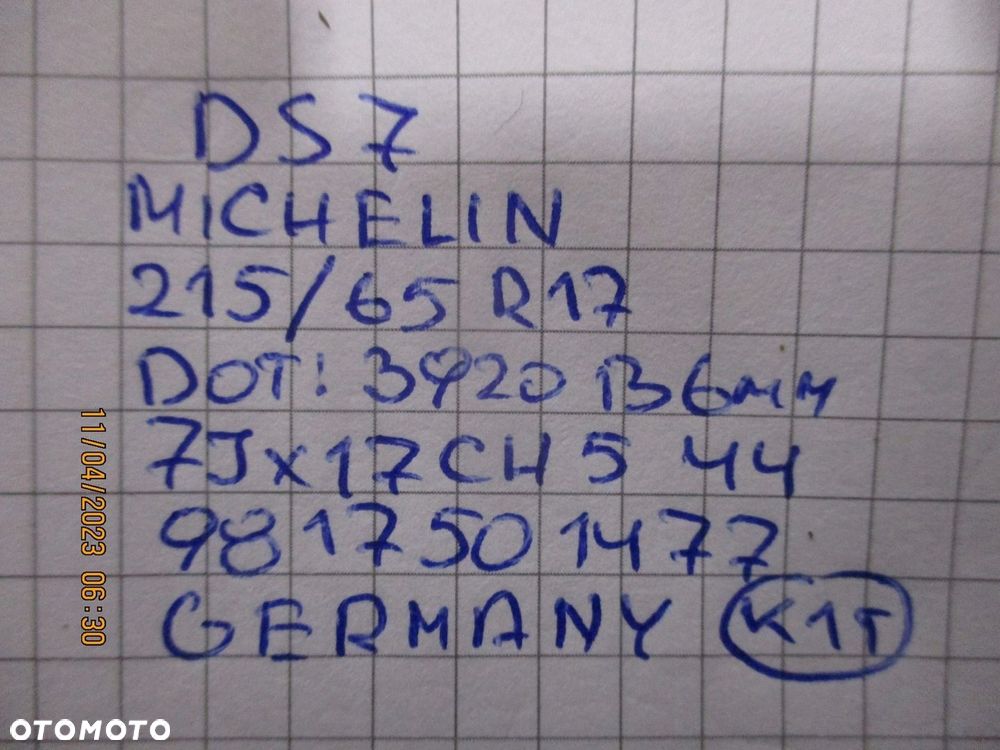 DS7
MICHELIN
215/65 R17
DOT: 3920 B 6mm
7Jx17CH 5 44
98 1750 1477
GERMANY K1T
11/04/2023 06:30
OTOMOTO